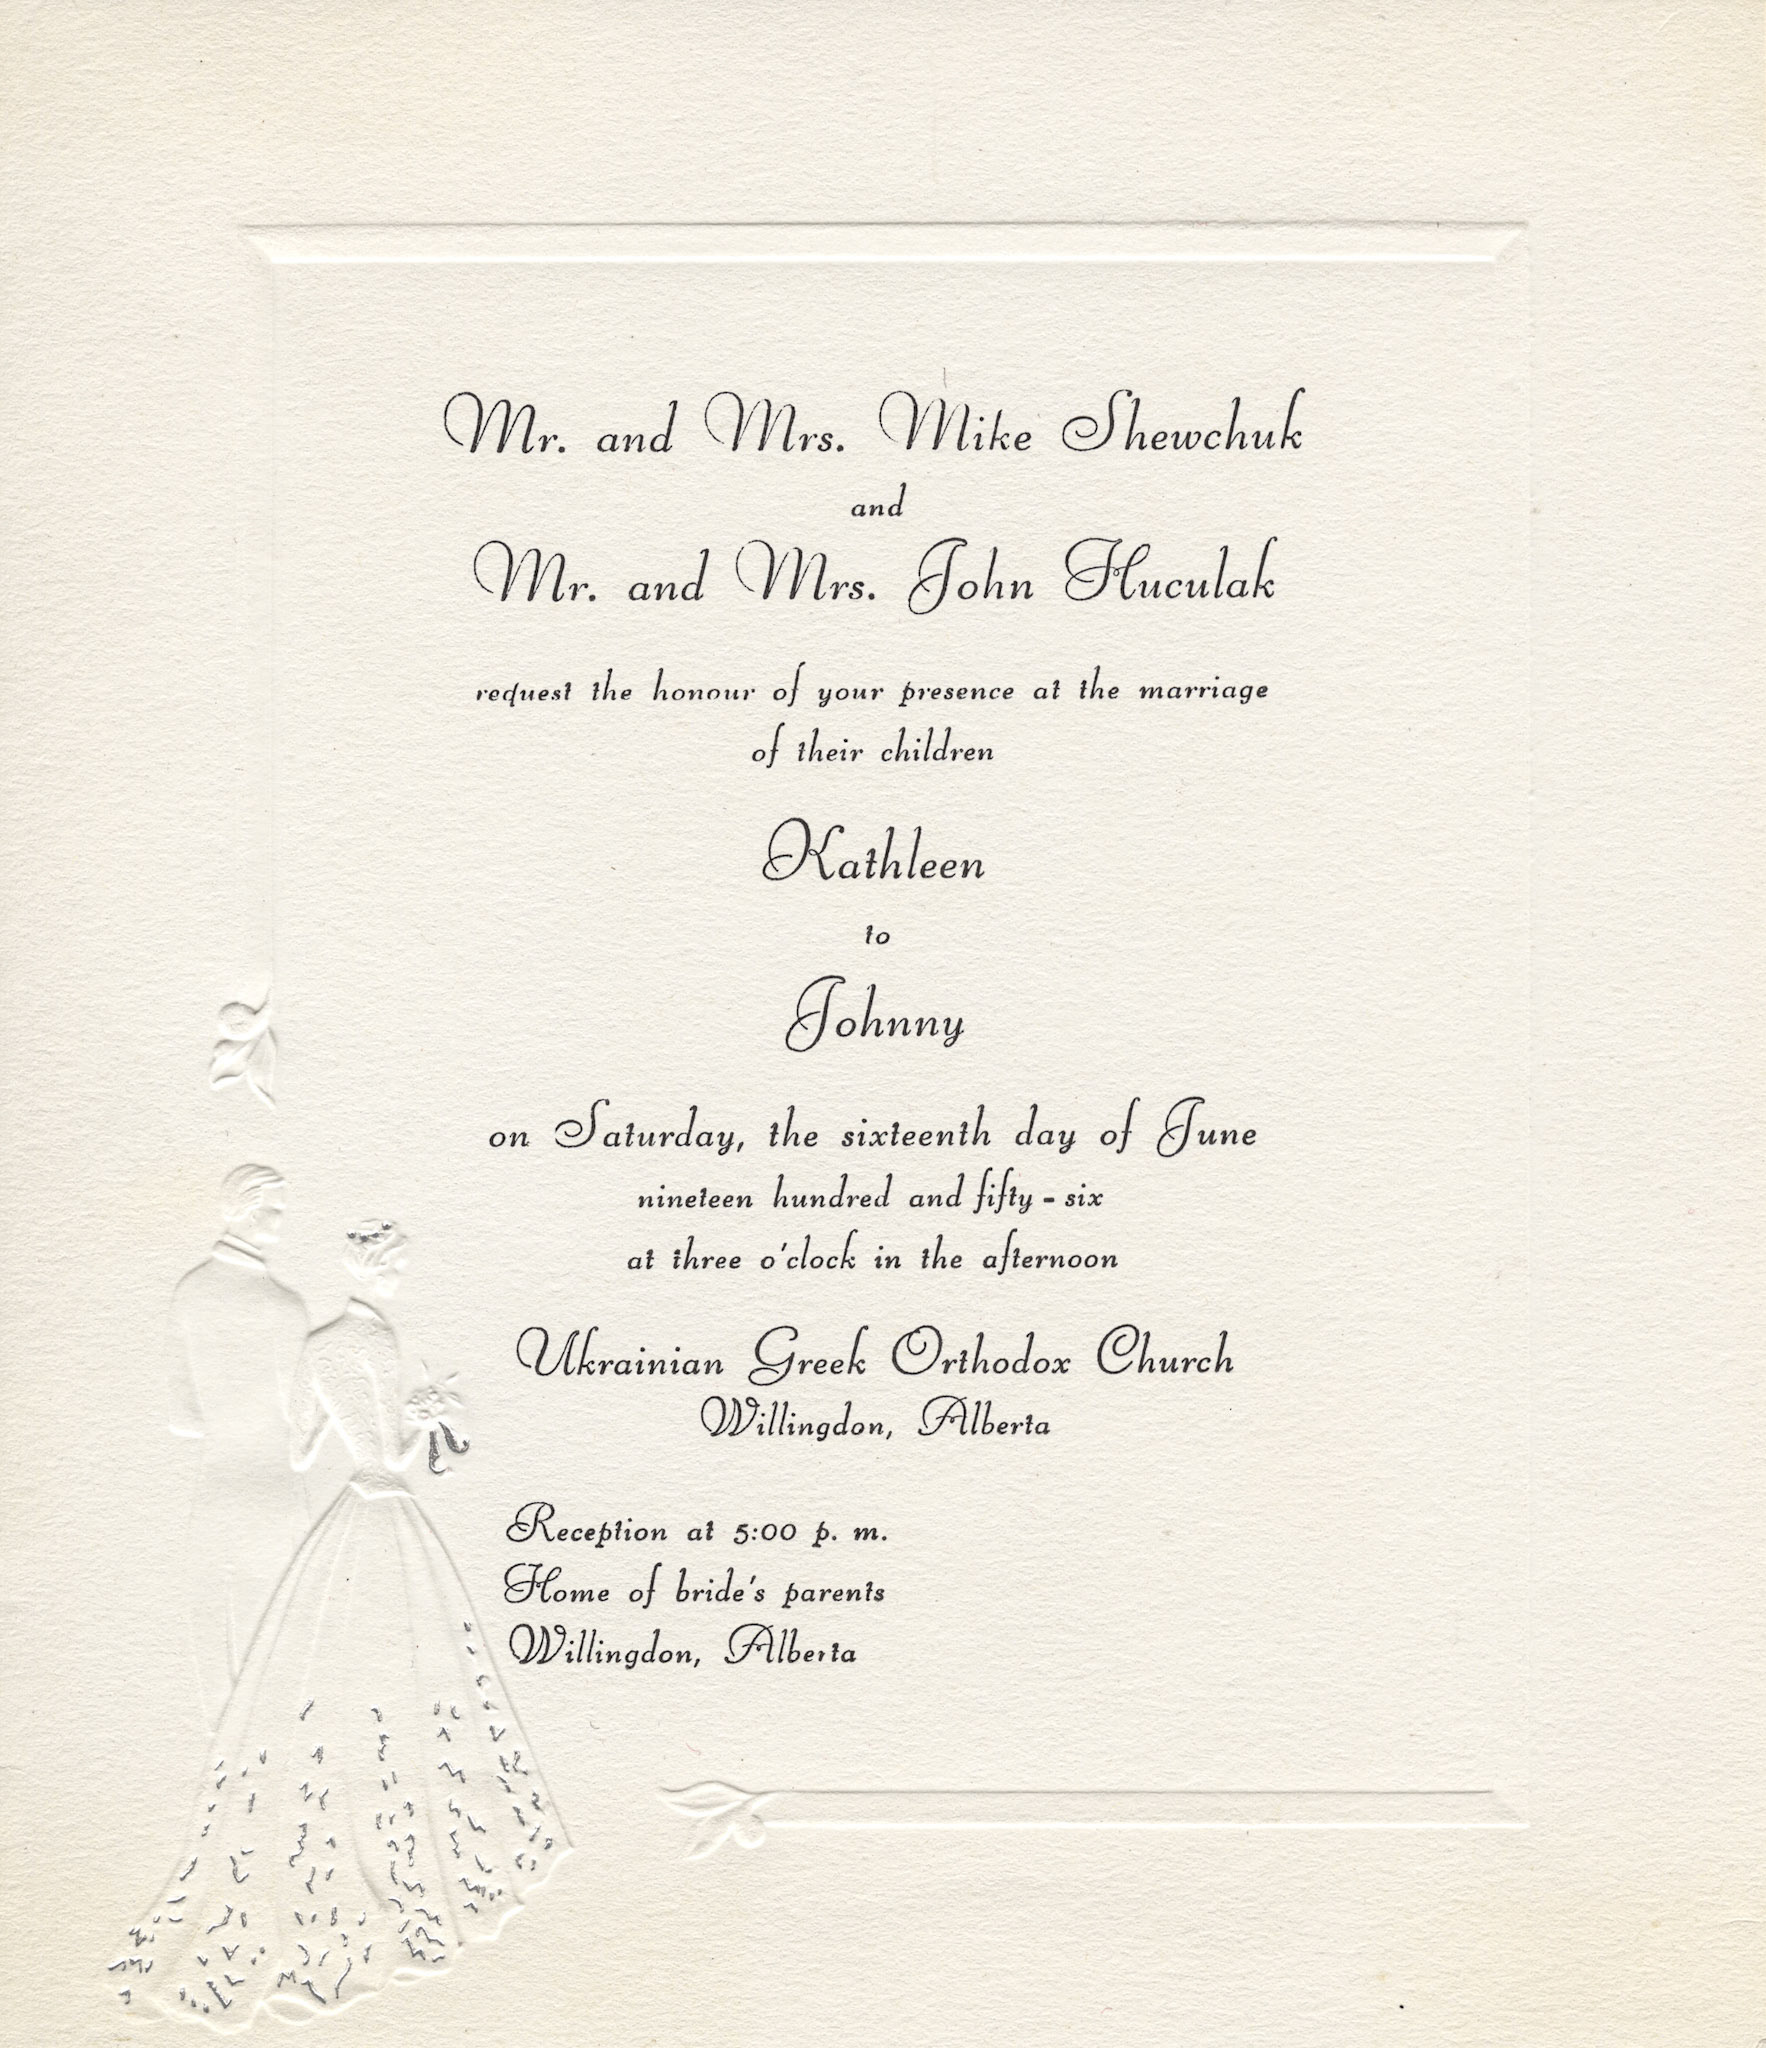 Mr. and Mrs. Mike Shewchuk
and
Mr. and Mrs. John Huculak
request the honour of your presence at the marriage
of their children
Kathleen
to
Johnny
on Saturday, the sixteenth day of June
nineteen hundred and fifty-six
at three o'clock in the afternoon
Ukrainian Greek Orthodox Church
Willingdon, Alberta
Reception at 5:00 p. m.
Home of bride's parents
Willingdon, Alberta